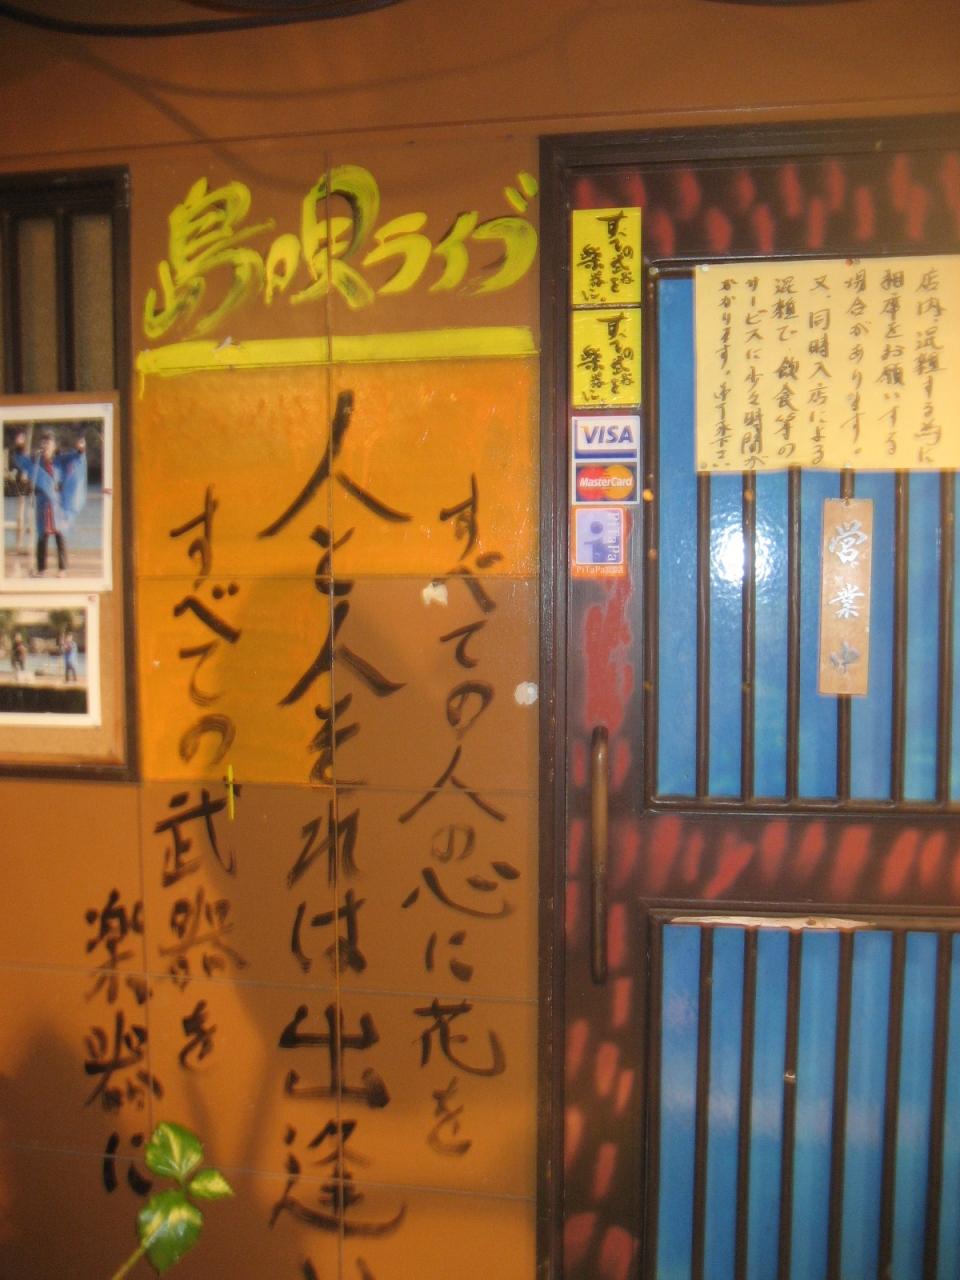 島唄ライブ
すべての人の心に花を
人と人それは出逢い
すべての武器を
楽器に
すべての武器を
楽器に。
すべての武器を
楽器に。
VISA
MasterCard
PiTaPa
PiTaPa
店内混雑する為に
相席をお願いする
場合があります。
又、同時入店による
混雑で飲食等の
サービスに少々時間が
かかります。御了承下さい
営業中